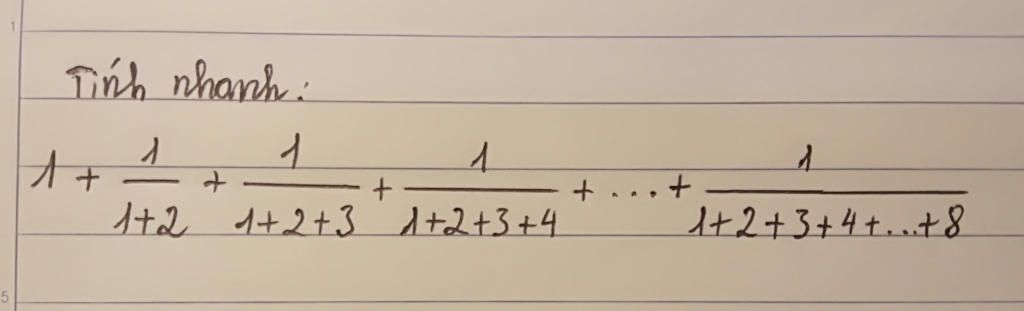 1
Tính nhanh:
1 + \frac{1}{1+2} + \frac{1}{1+2+3} + \frac{1}{1+2+3+4} + ... + \frac{1}{1+2+3+4+...+8}
5